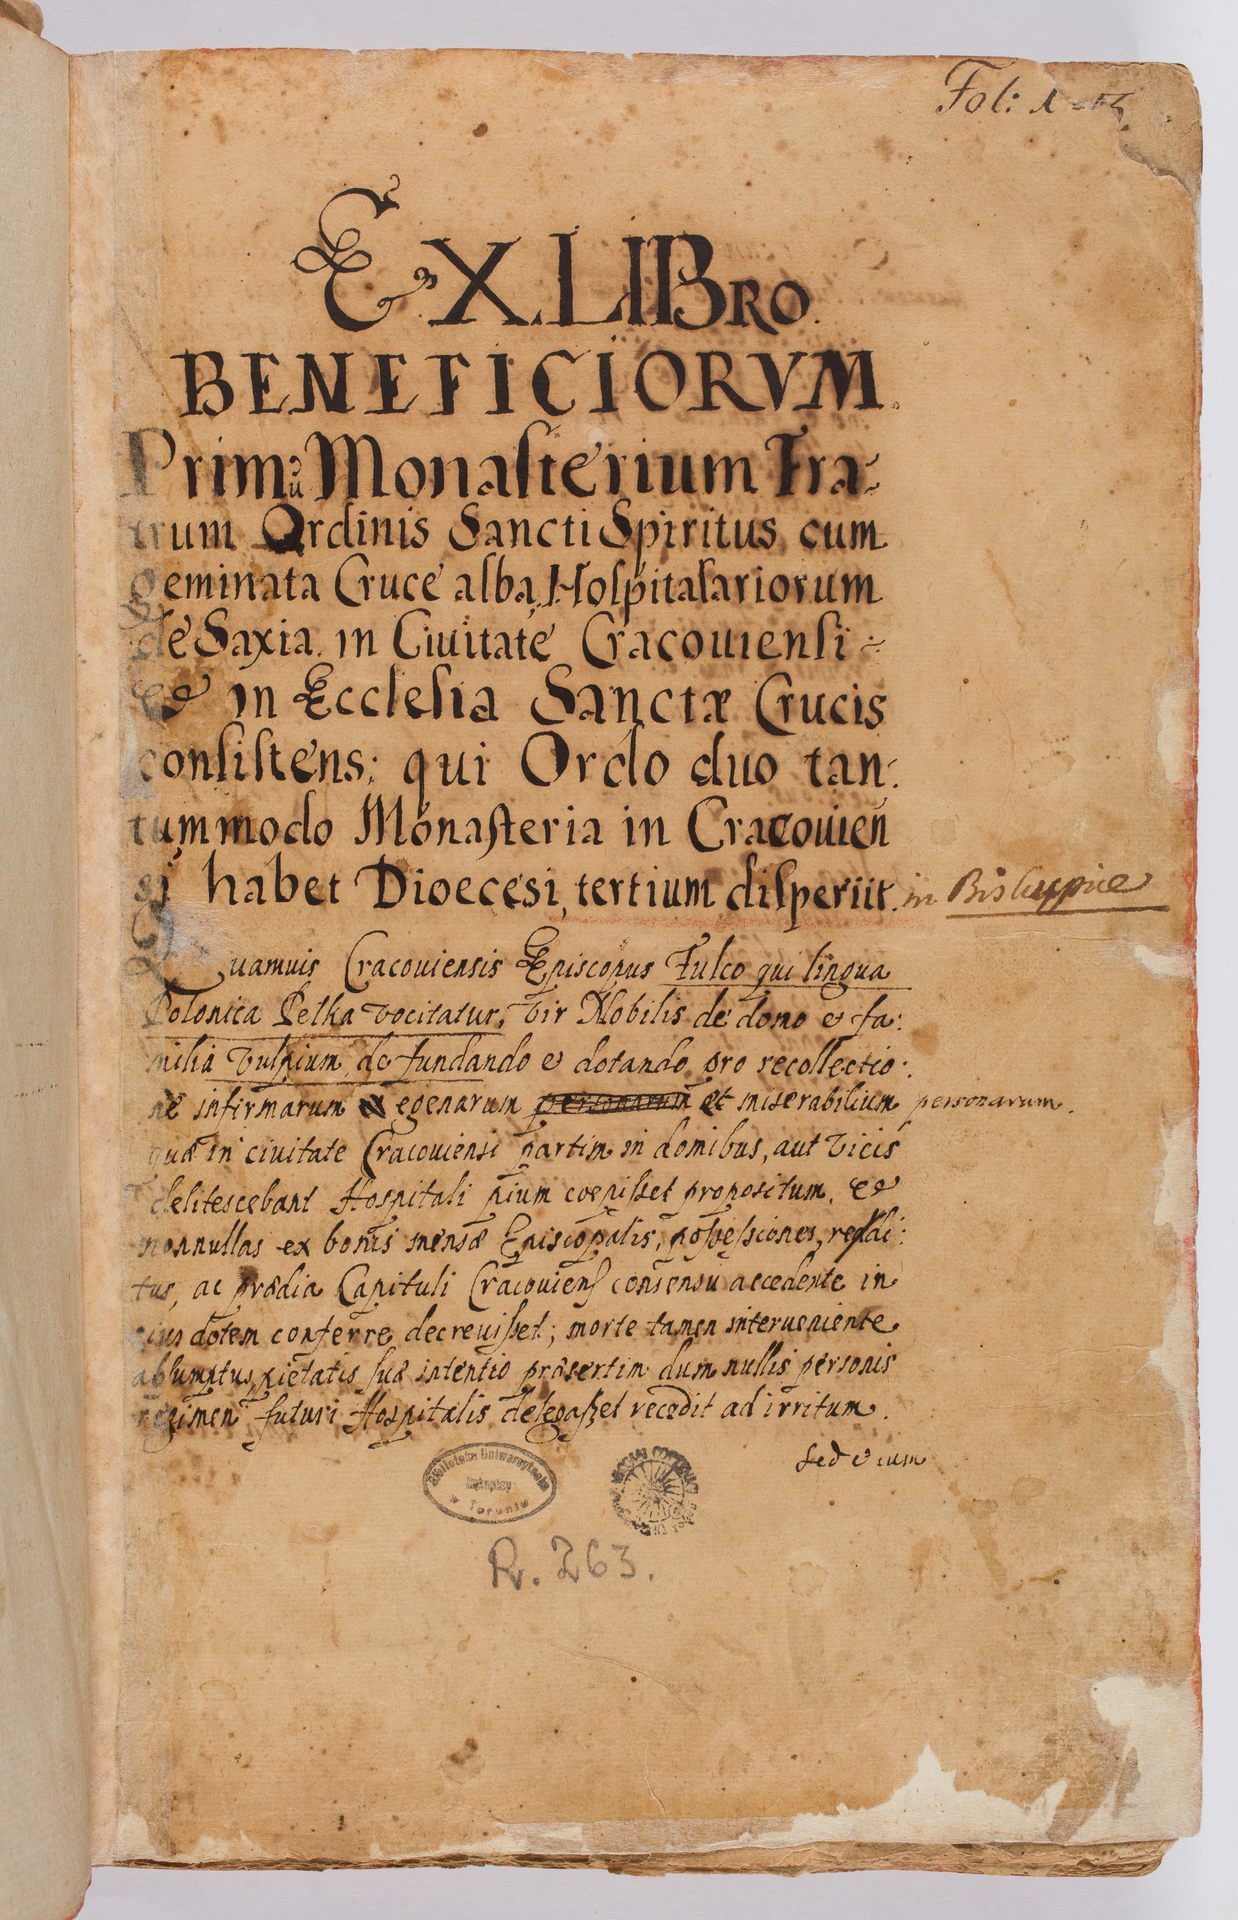 Fol: 1
EX LIBRO
BENEFICIORVM
Primũ Monasterium Fra-
trum Ordinis Sancti Spiritus cum
geminata Cruce alba, Hospitalariorum
de Saxia in Ciuitate Cracouiensi
et in Ecclesia Sanctæ Crucis
consistens; qui Ordo duo tan:
tummodo Monasteria in Cracouien
si habet Dioecesi, tertium disperiit. in Biskupice
Quamuis Cracouiensis Episcopus Fulco qui lingua
Polonica Pelka vocitatur, vir Nobilis de domo et fa:
milia Vulpium, de fundando et dotando pro recollectio:
ne infirmarum et egenarum personarum et miserabilium personarum
quæ in ciuitate Cracouiensi partim in domibus, aut vicis
delitescebant Hospitali pium coepisset propositum, et
nonnullas ex bonis mensæ Episcopalis, possessiones, reddi:
tus, ac prædia Capituli Cracouiens consensu accedente in
eius dotem conferre decreuisset; morte tamen interueniente
absumptus, pietatis suæ intentio præsertim dum nullis personis
regimen futuri Hospitalis delegasset recedit ad irritum.
Sed et cum
Biblioteka Uniwersytecka
w Toruniu
R. 263.